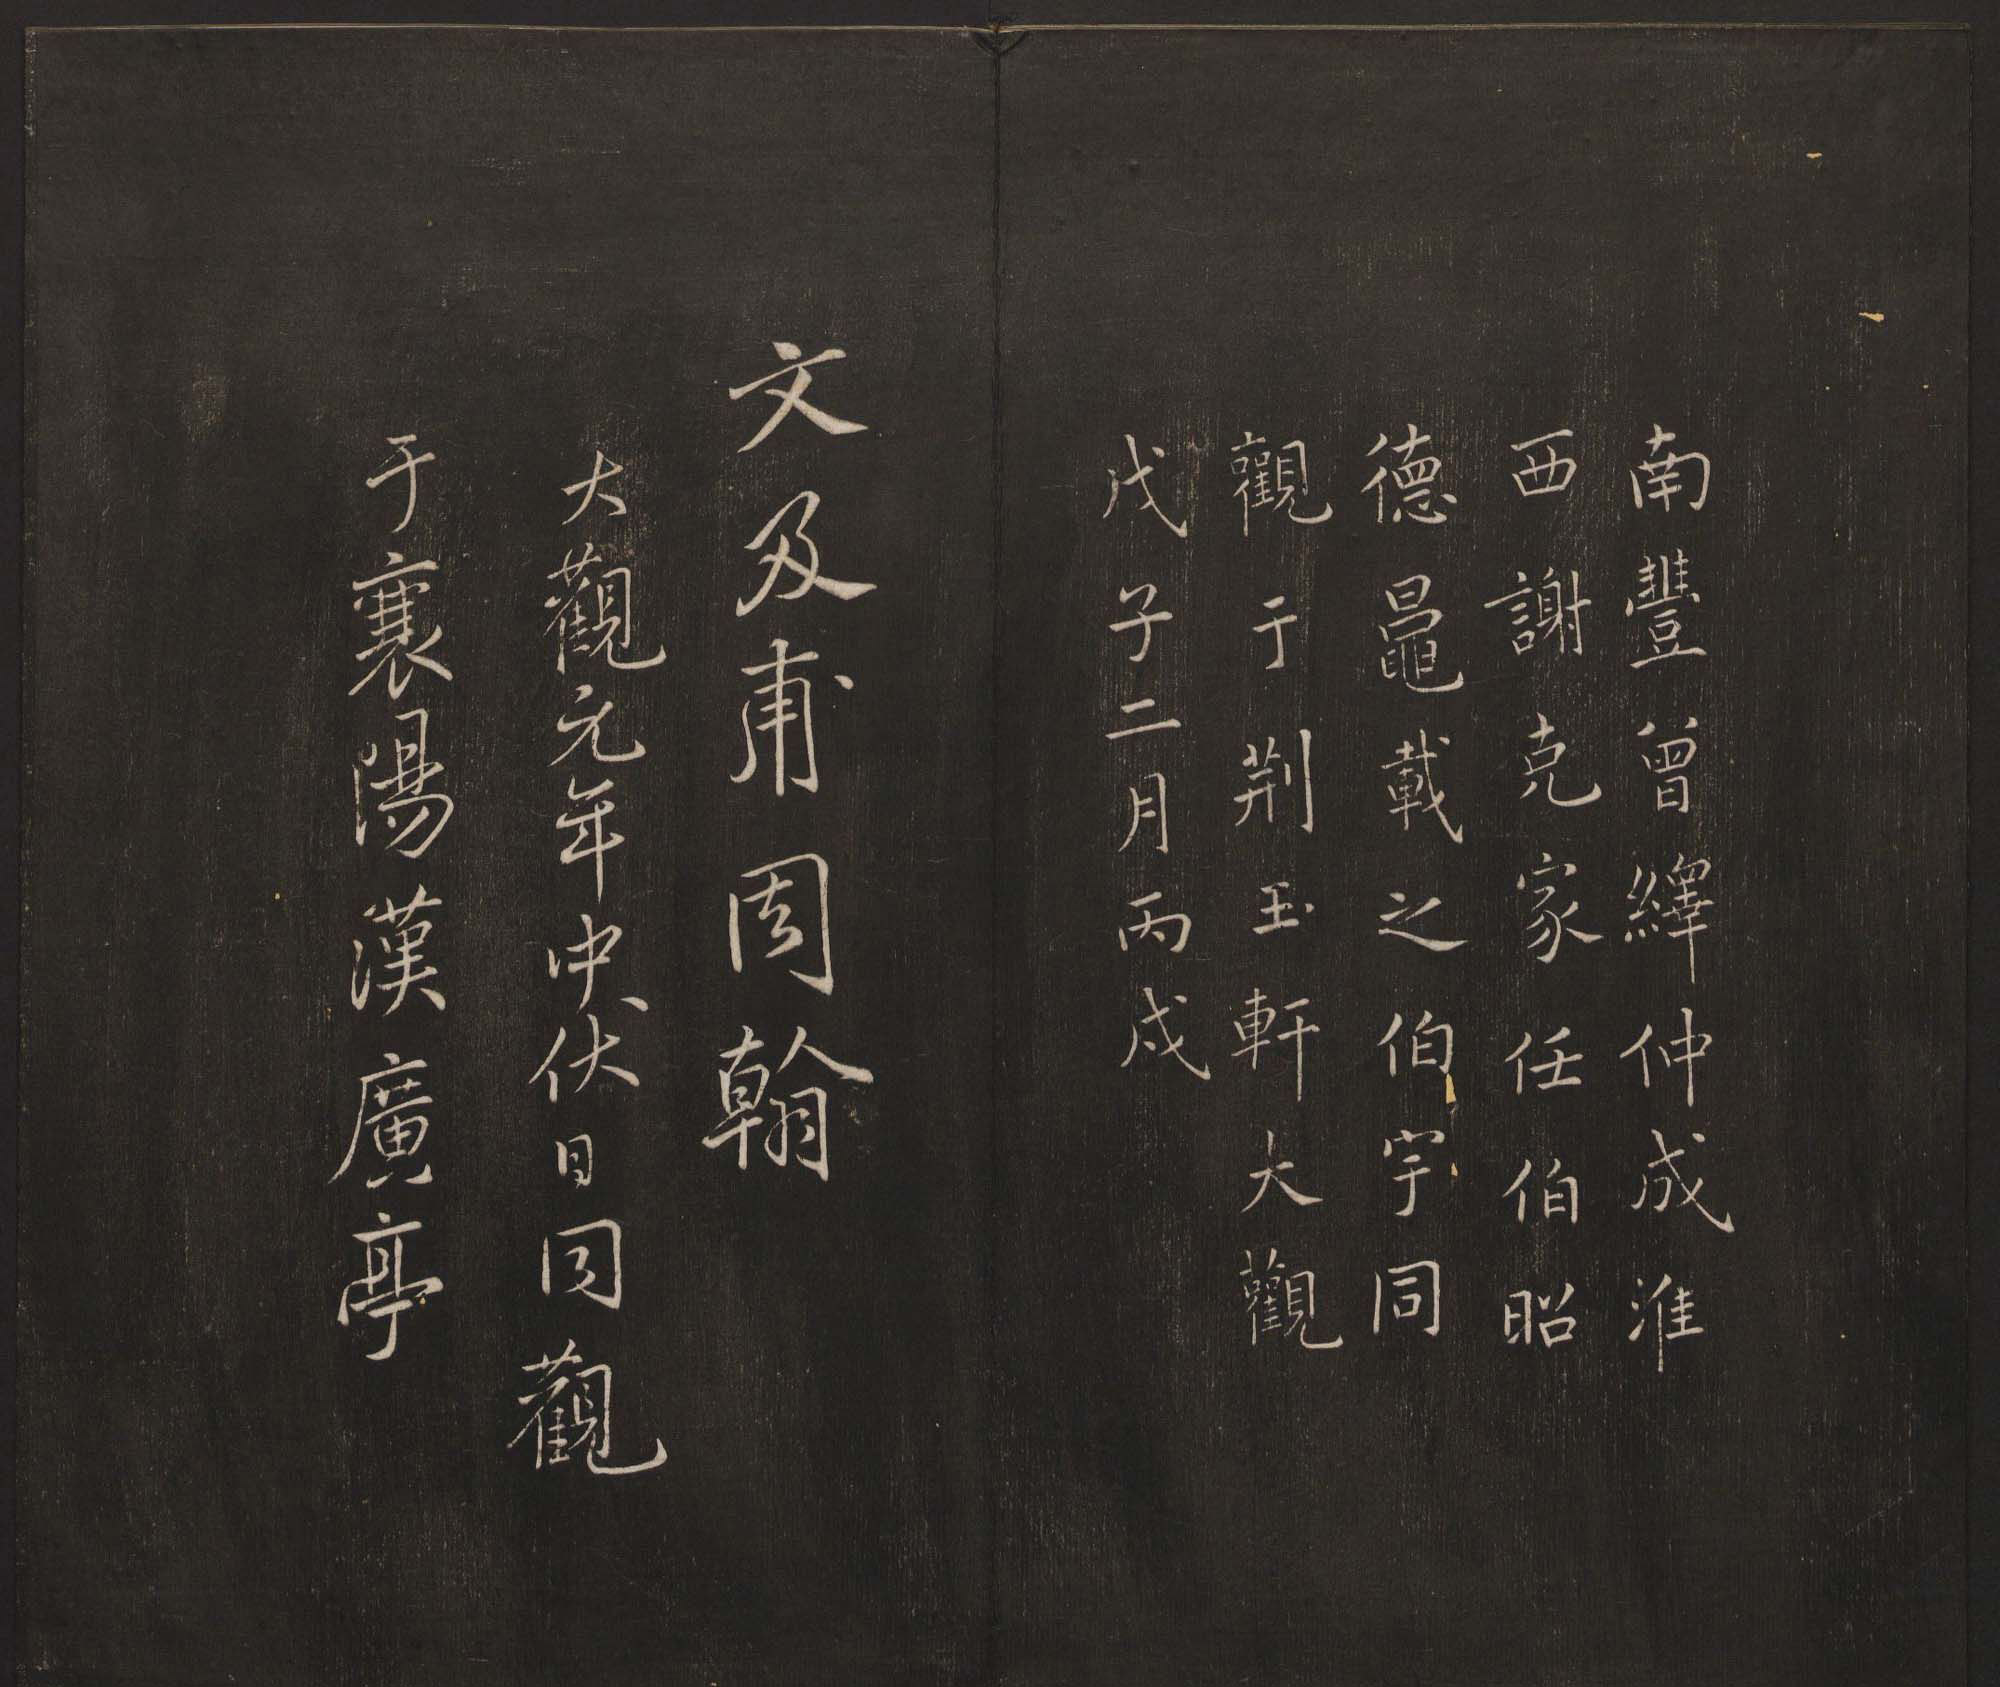 南豐曾繹仲成淮
西謝克家任伯昭
德鼂載之伯宇同
觀于荆玉軒大觀
戊子二月丙戌
文及甫周翰
大觀元年中伏日同觀
于襄陽漢廣亭